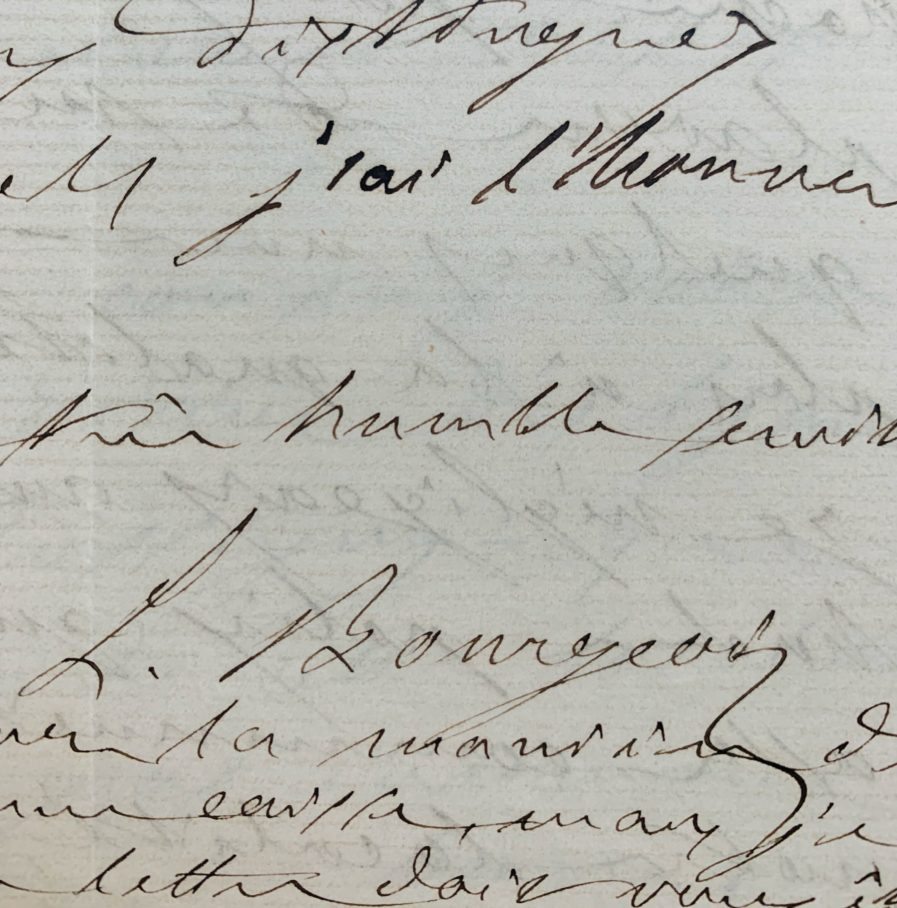 distingués
j'ai l'honneu
très humble servit
L. Bourgeois
la manière de
caisse, mais je
lettre doit vous